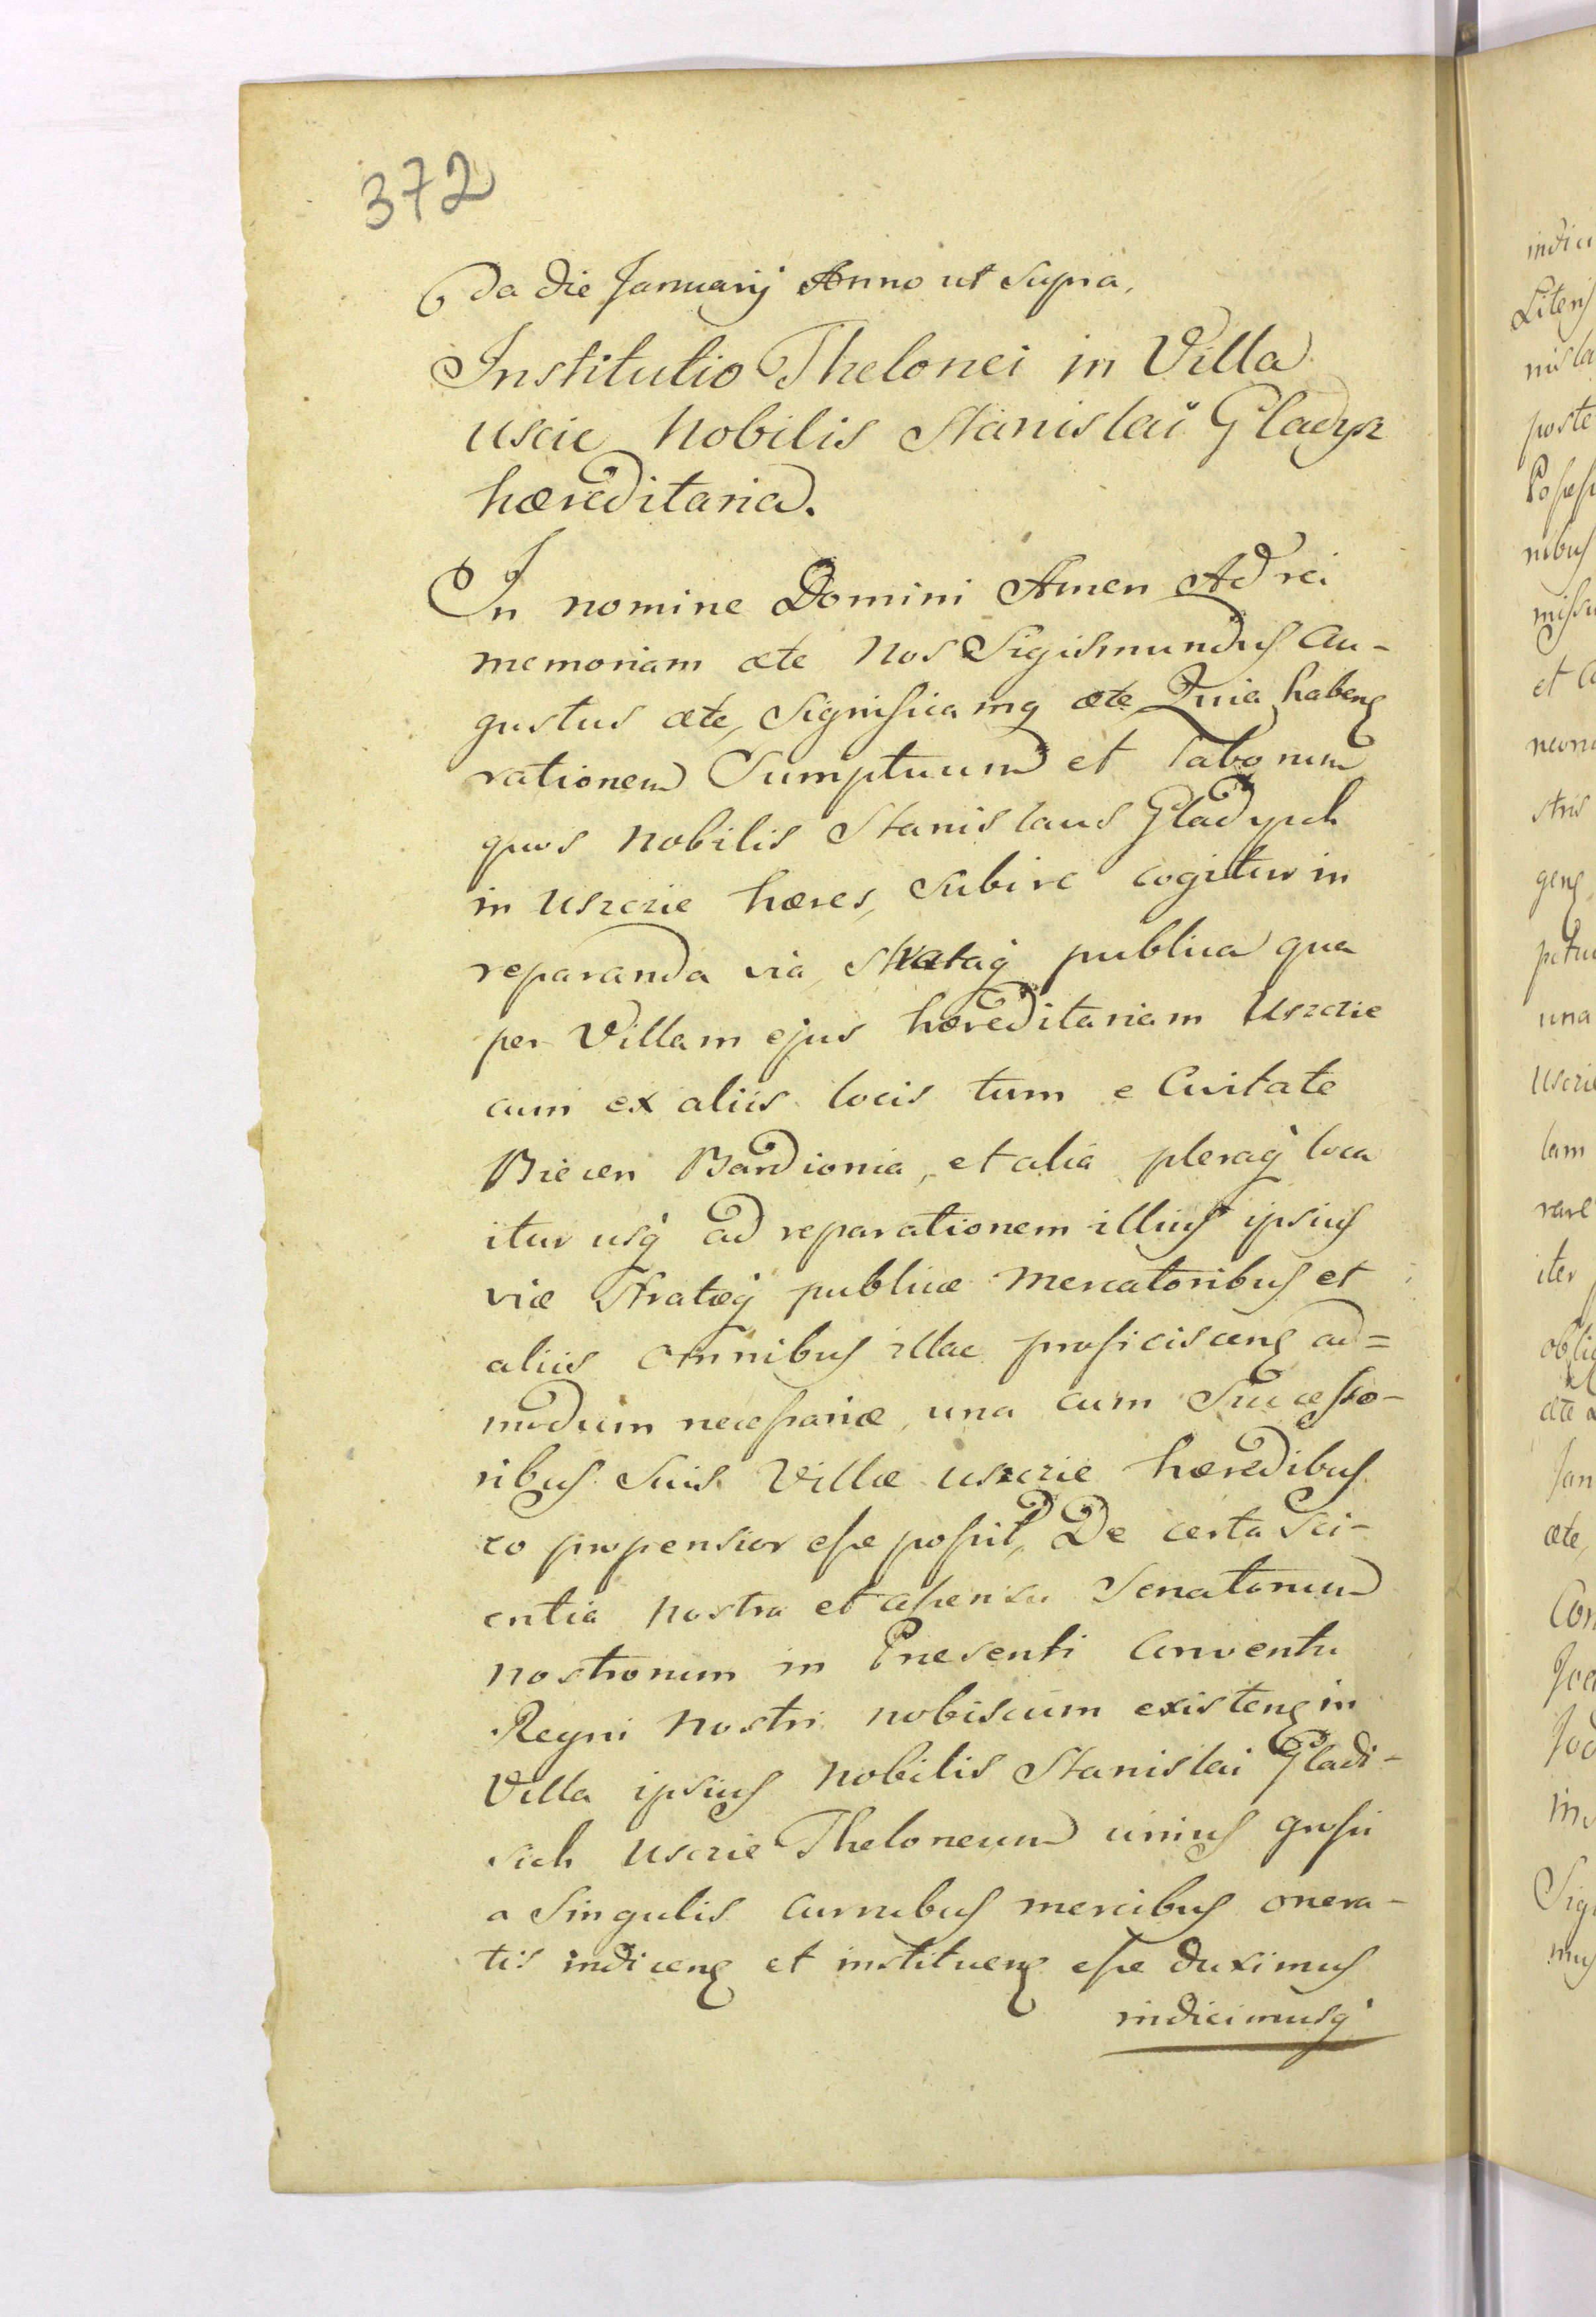 372
6 da die Januarij Anno ut supra,
Institutio Thelonei in Villa
uscie Nobilis Stanislai Gladysz
hæreditaria.
In nomine Domini Amen Ad rei
memoriam æte Nos Sigismundus Au-
gustus æte, Significamq æte Quia habenʒ
rationem Sumptuum et Laborum
quos Nobilis Stanislaus Gladysch
in Uszczie hæres, subire cogitur in
reparanda via, strataq́ publica qua
per Villam ejus hæreditariam Uszczie
cum ex aliis locis tum e Civitate
Biecen Bardionia, et alia pleraq́ loca
itur usq́ ad reparationem illius ipsius
viæ Stratæq́ publicæ Mercatoribus et
aliis omnibus illac proficiscenʒ ad=
modum necessariæ, una cum Successo-
ribus suis Villæ uszczie hæredibus
eo propensior esse possit, De certa Sci-
entia nostra et assensu Senatorum
nostrorum in Presenti Conventu
Regni nostri nobiscum existenʒ in
Villa ipsius Nobilis Stanislai Gladi-
sich Usczie Theloneum unius grossi
a Singulis curribus mercibus onera-
tis indicenʒ et instituenʒ esse duximus
indicimusq́
indici
Liters
nisla
poste
nibus
missu
stris
genʒ
petuu
una
Usczie
lam
rare
iter
æte,